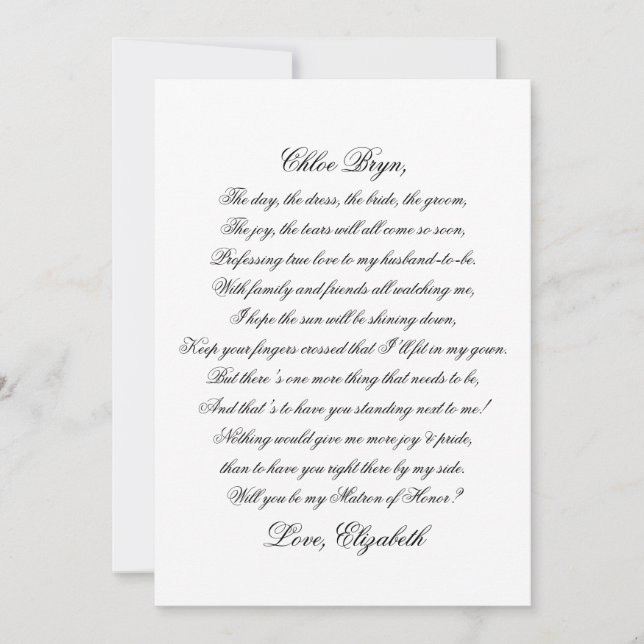 Chloe Bryn,
The day, the dress, the bride, the groom,
The joy, the tears will all come so soon,
Professing true love to my husband-to-be.
With family and friends all watching me,
I hope the sun will be shining down,
Keep your fingers crossed that I'll fit in my gown.
But there's one more thing that needs to be,
And that's to have you standing next to me!
Nothing would give me more joy & pride,
than to have you right there by my side.
Will you be my Matron of Honor?
Love, Elizabeth